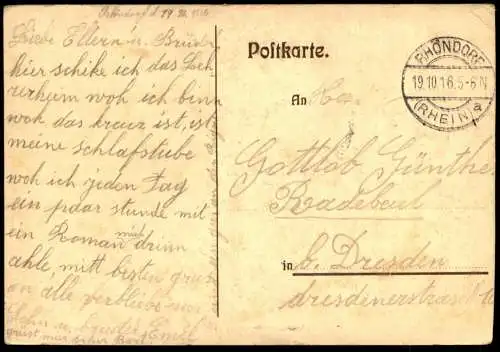 Rhöndorf d 19. 10. 1916
Liebe Eltern u. Brüder
hier schike ich das Leh
rerheim woh ich binn
woh das kreuz ist, ist
meine schlafstube
woh ich jeden Tag
ein paar stunde mit
ein Roman mich drinn
ahle, mitt besten grus
an alle verbleibe
Sohn u. bruder Emil
Postkarte.
RHÖNDORF
19.10.16.5-6N
(RHEIN) a
An Herr
Gottlob Günther
Radebeul
in b. Dresden
dresdenerstrase